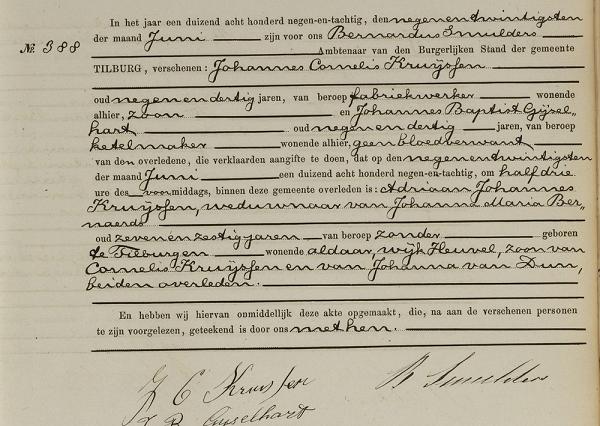 In het jaar een duizend acht honderd negen-en-tachtig, den negenentwintigsten
№ 388 der maand Juni zijn voor ons Bernardus Smulders
Ambtenaar van den Burgerlijken Stand der gemeente
TILBURG, verschenen: Johannes Cornelis Kruijssen
oud negenendertig jaren, van beroep fabriekwerker wonende
alhier, zoon en Johannes Baptist Gijsel„
hart oud negenendertig jaren, van beroep
ketelmaker wonende alhier, geen bloedverwant
van den overledene, die verklaarden aangifte te doen, dat op den negenentwintigsten
der maand Juni een duizend acht honderd negen-en-tachtig, om half drie
ure des voormiddags, binnen deze gemeente overleden is: Adriaan Johannes
Kruijssen, weduwnaar van Johanna Maria Ber„
naerds
oud zevenenzestig jaren van beroep zonder geboren
te Tilburg en wonende aldaar, wijk Heuvel, zoon van
Cornelis Kruijssen en van Johanna van Dun,
beiden overleden.
En hebben wij hiervan onmiddellijk deze akte opgemaakt, die, na aan de verschenen personen
te zijn voorgelezen, geteekend is door ons met hen.
J C Kruijssen B Smulders
J. B. Gijselhart